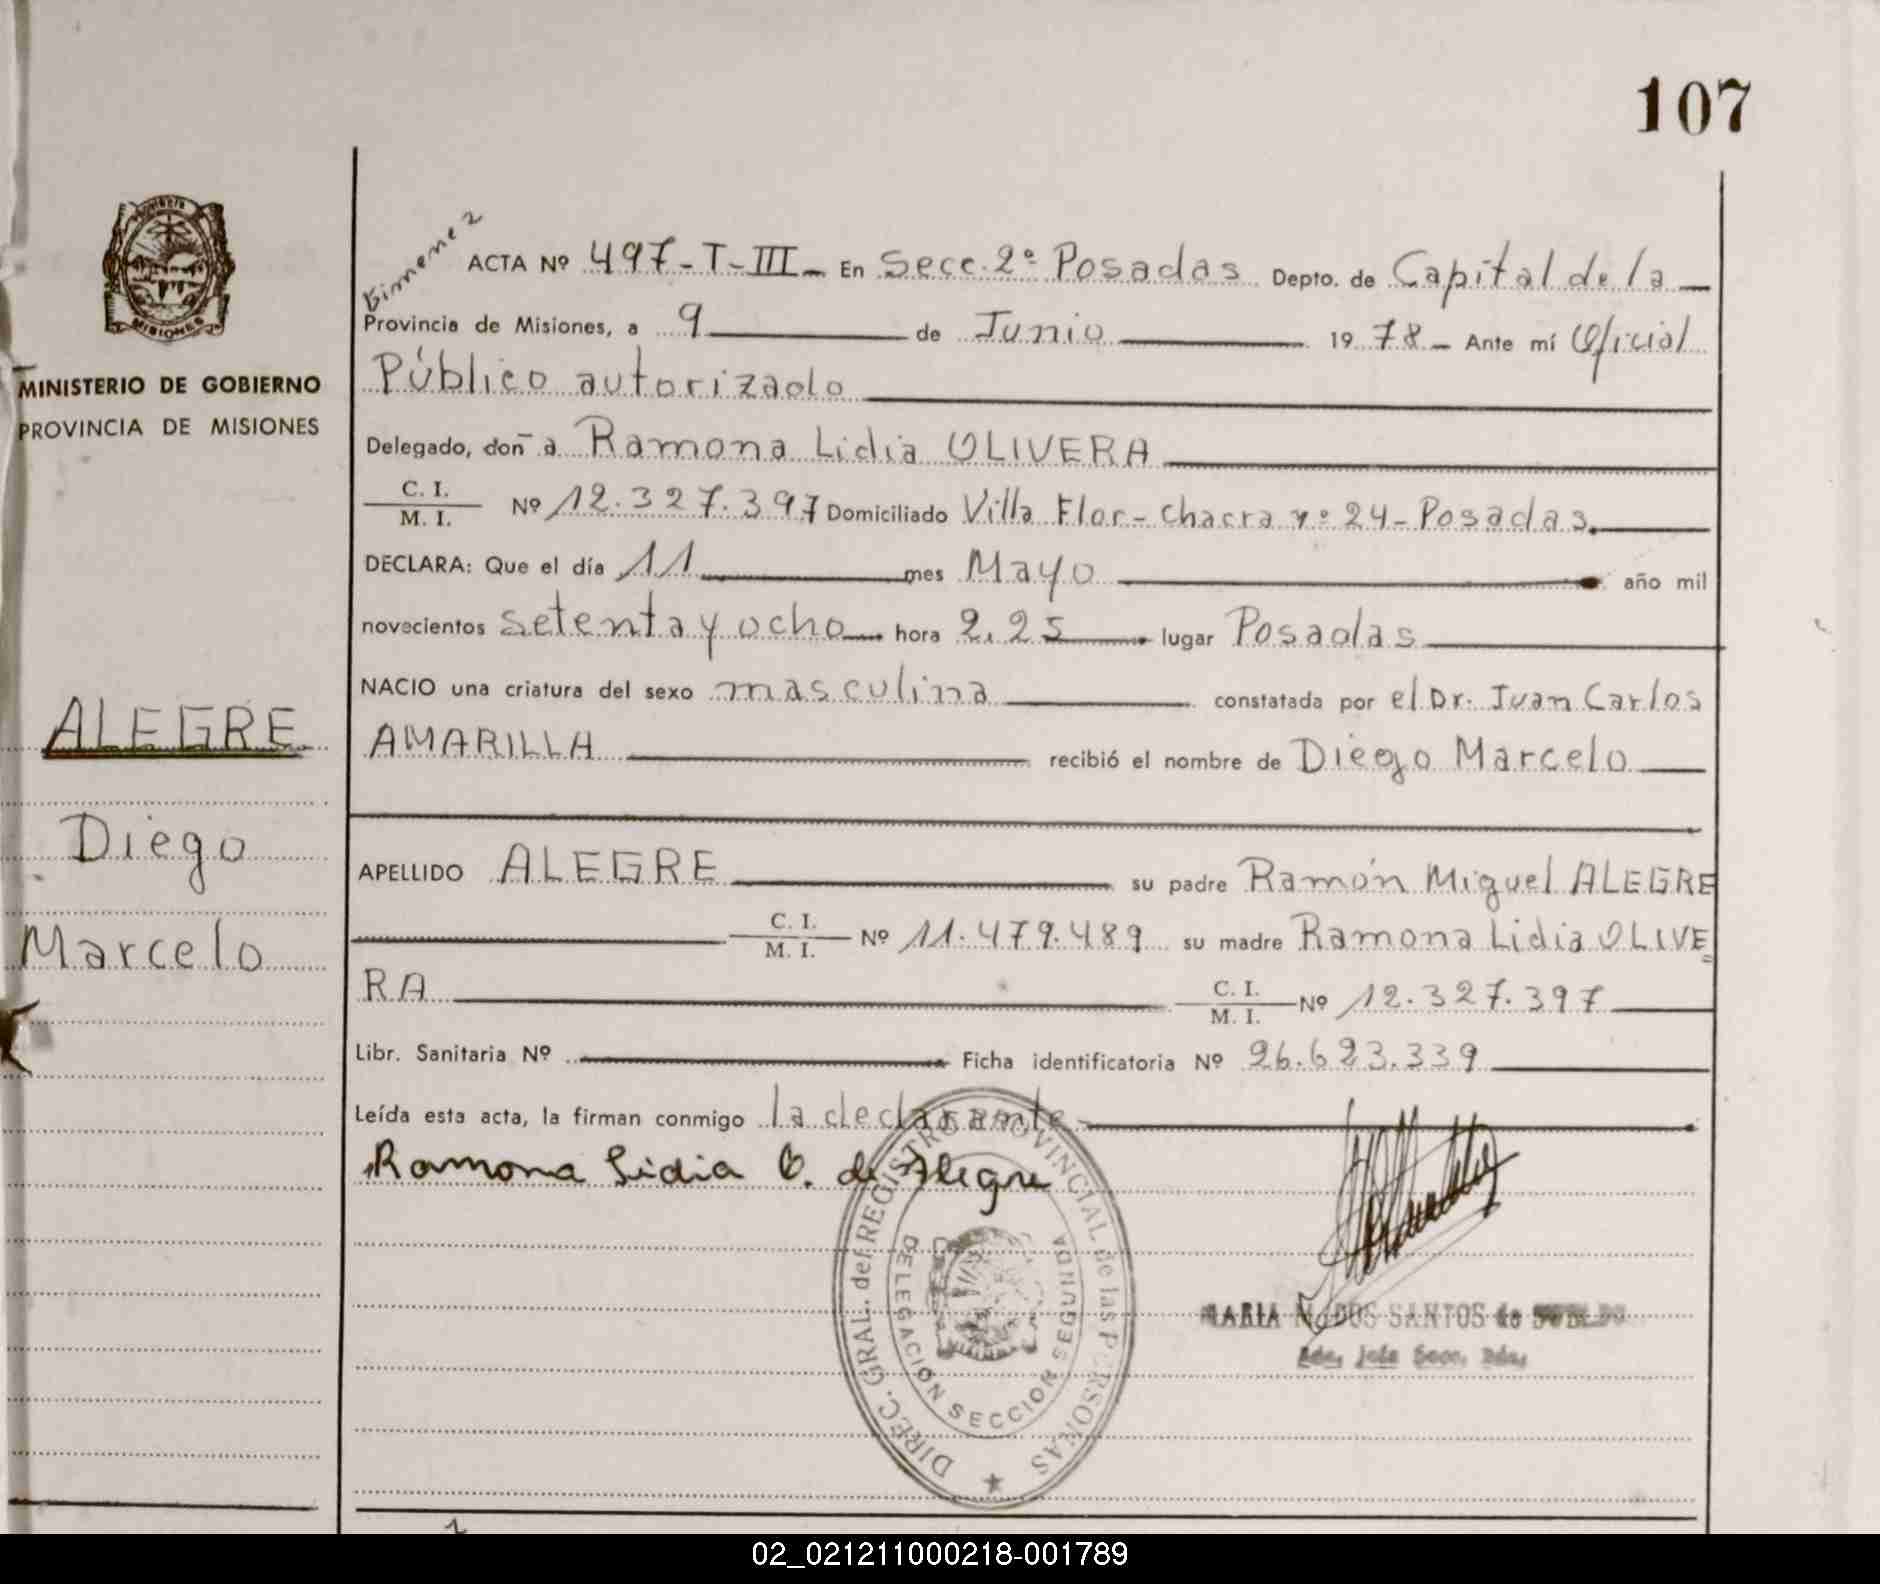 107
Gimenez
ACTA Nº 497-T-III- En Secc. 2º Posadas Depto. de Capital de la
Provincia de Misiones, a 9 de Junio 1978- Ante mí Oficial
Público autorizado
MINISTERIO DE GOBIERNO
PROVINCIA DE MISIONES
MISIONES
Delegado, doña Ramona Lidia OLIVERA
C. I.
M. I. Nº 12.327.397 Domiciliado Villa Flor- Chacra nº 24- Posadas.
DECLARA: Que el día 11 mes Mayo año mil
novecientos setenta y ocho hora 2.25 lugar Posadas
NACIO una criatura del sexo masculina constatada por el Dr. Juan Carlos
AMARILLA recibió el nombre de Diego Marcelo
ALEGRE
Diego
Marcelo
APELLIDO ALEGRE su padre Ramón Miguel ALEGRE
C. I.
M. I. Nº 11.479.489 su madre Ramona Lidia OLIVE=
RA C. I.
M. I. Nº 12.327.397
Libr. Sanitaria Nº Ficha identificatoria Nº 26.623.339
Leída esta acta, la firman conmigo la declarante
Ramona Lidia O. de Alegre
DIREC. GRAL. del REGISTRO PROVINCIAL de las PERSONAS
DELEGACION SECCION SEGUNDA
MARIA DOS SANTOS de
02_021211000218-001789